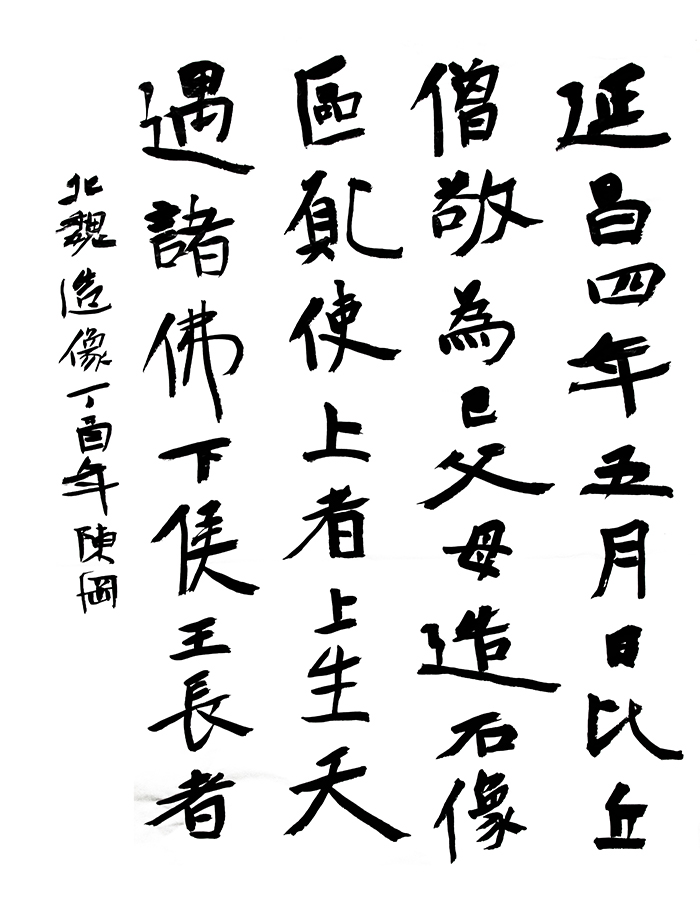 延昌四年五月日比丘
僧敬為巳父母造石像
區使上者上生天
遇諸佛下侯王長者
北魏造像丁酉年陳